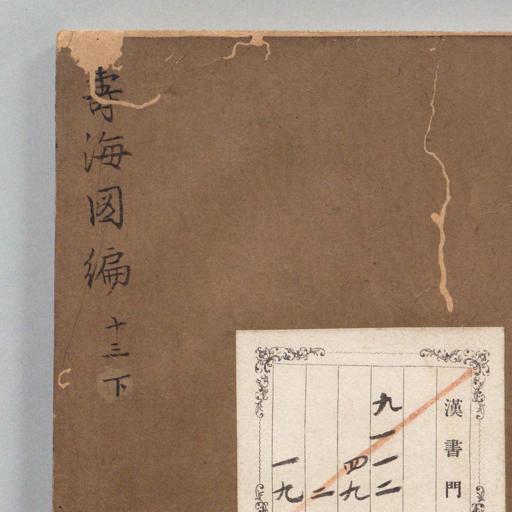 籌海図編 十三下
漢書門
九一一二
四九
二
一九